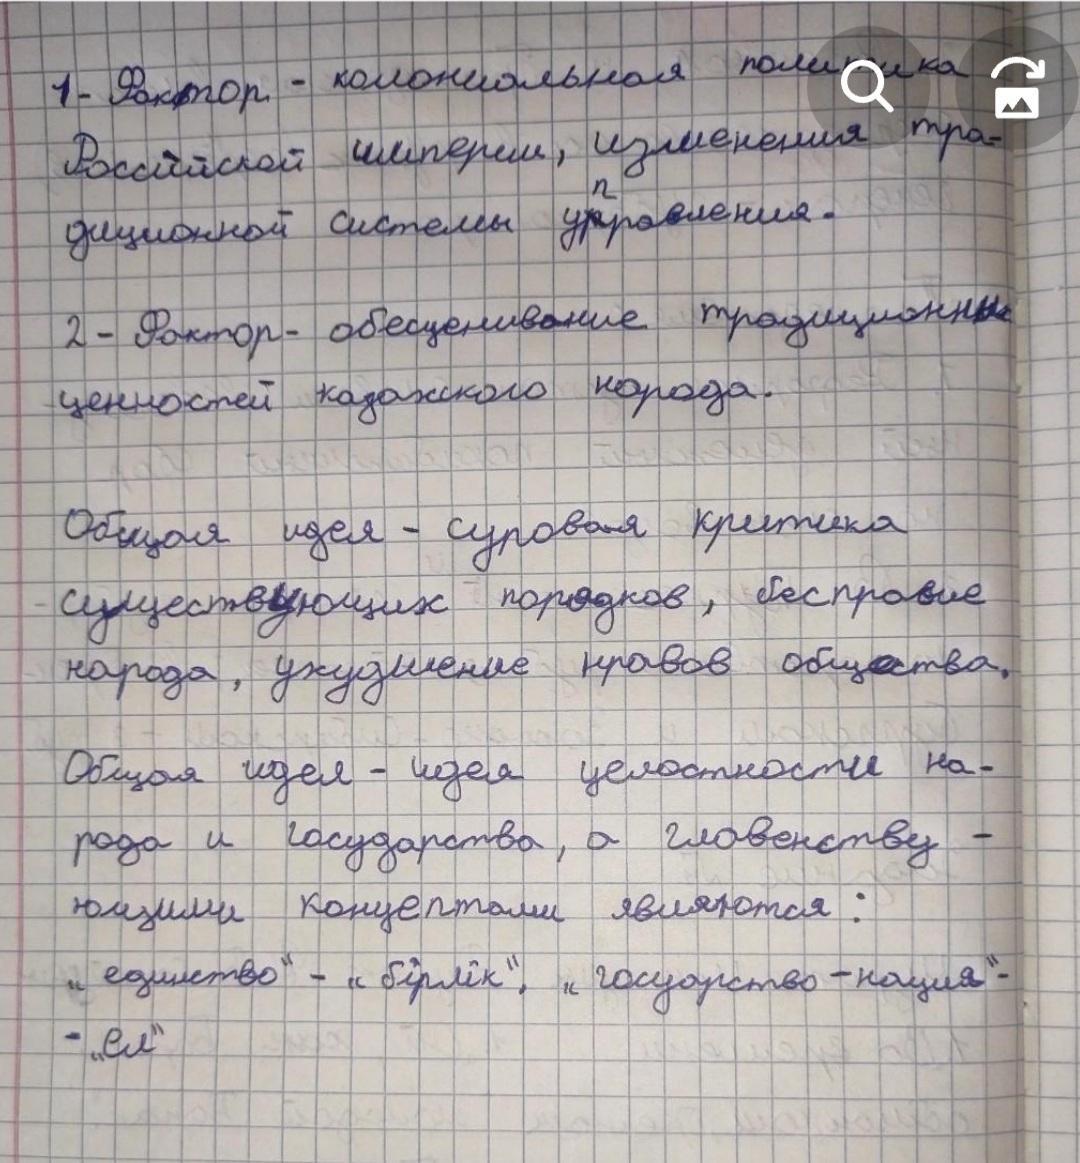 1- Фактор. - колониальная политика
Российской империи, изменения тра-
диционной системы управления.
2- Фактор- обесценивание традиционных
ценностей казахского народа.
Общая идея - суровая критика
существующих порядков, бесправие
народа, ухудшение нравов общества.
Общая идея - идея целостности на-
рода и государства, а главенству-
ющими концептами являются:
„единство" - „бірлік", „госуарство-нация"-
- „ел"